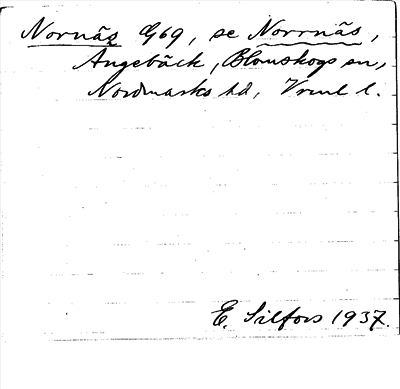 Nornäs G69, se Norrnäs,
Ångebäck, Blomskogs sn,
Nordmarks hd, Vrml l.
E. Silfors 1937.